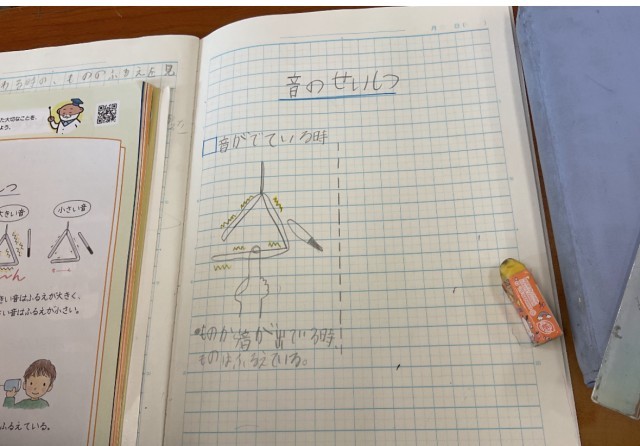 わる時の、もののふるえを見
た大切なことを、
よう。
大きい音
小さい音
きい音はふるえが大きく、
さい音はふるえが小さい。
ふるえている。
音のせいしつ
音がでている時
ものから音が出ている時、
ものはふるえている。